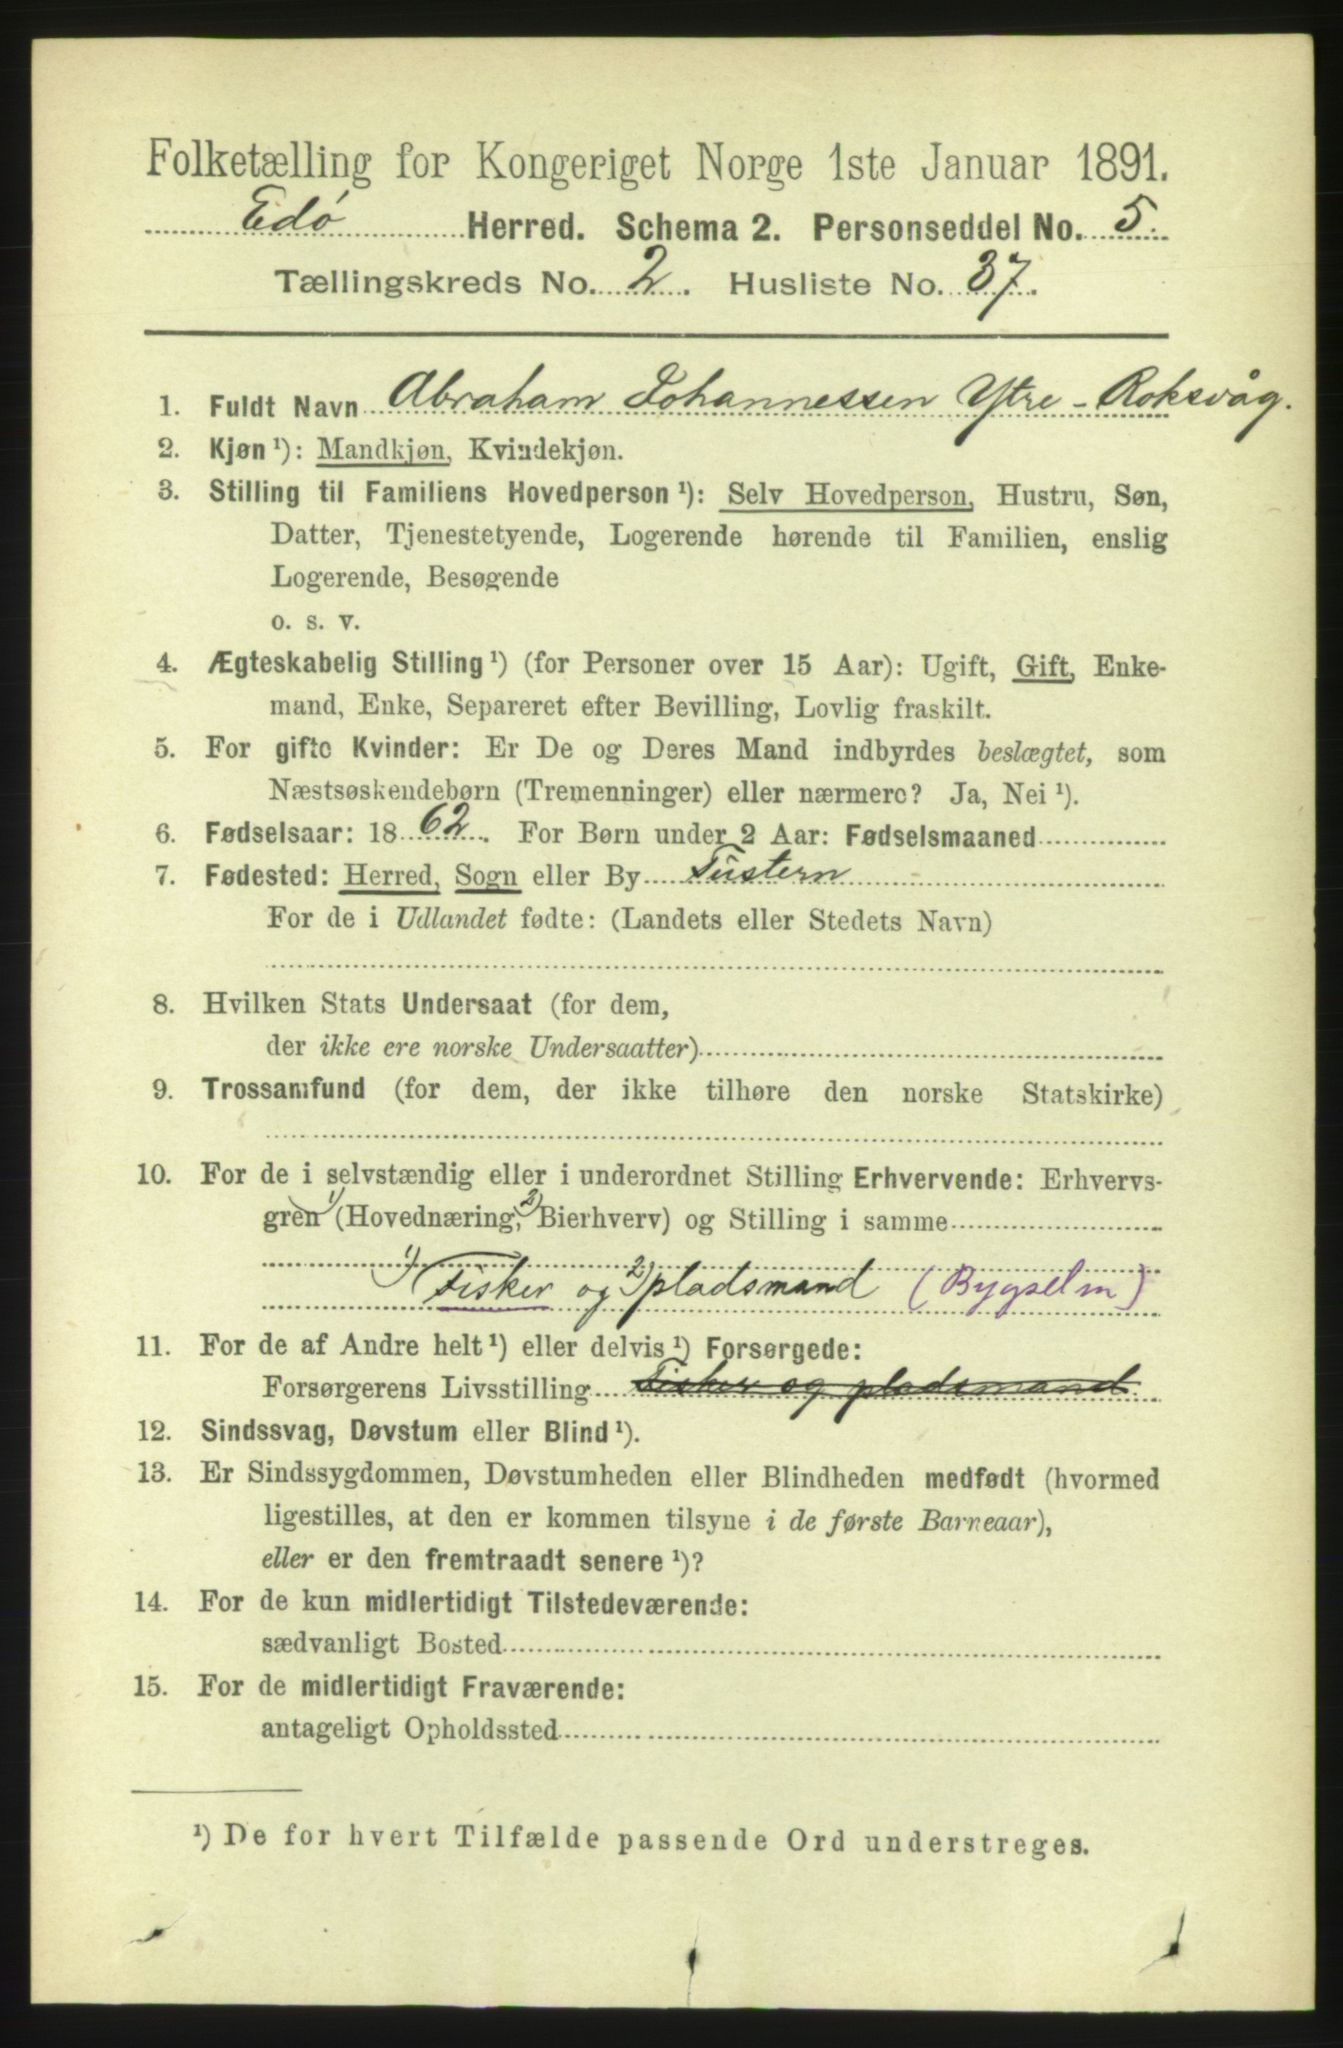 Folketælling for Kongeriget Norge 1ste Januar 1891.
Edø Herred. Schema 2. Personseddel No. 5.
Tællingskreds No. 2. Husliste No. 37.
1. Fuldt Navn Abraham Johannessen Ytre-Roksvåg.
2. Kjøn ¹): Mandkjøn, Kvindekjøn.
3. Stilling til Familiens Hovedperson ¹): Selv Hovedperson, Hustru, Søn,
Datter, Tjenestetyende, Logerende hørende til Familien, enslig
Logerende, Besøgende
o. s. v.
4. Ægteskabelig Stilling ¹) (for Personer over 15 Aar): Ugift, Gift, Enke-
mand, Enke, Separeret efter Bevilling, Lovlig fraskilt.
5. For gifte Kvinder: Er De og Deres Mand indbyrdes beslægtet, som
Næstsøskendebørn (Tremenninger) eller nærmere? Ja, Nei ¹).
6. Fødselsaar: 1862. For Børn under 2 Aar: Fødselsmaaned
7. Fødested: Herred, Sogn eller By Tustern
For de i Udlandet fødte: (Landets eller Stedets Navn)
8. Hvilken Stats Undersaat (for dem,
der ikke ere norske Undersaatter)
9. Trossamfund (for dem, der ikke tilhøre den norske Statskirke)
10. For de i selvstændig eller i underordnet Stilling Erhvervende: Erhvervs-
gren ¹) (Hovednæring, ²) Bierhverv) og Stilling i samme
¹) Fisker og ²) pladsmand (Bygselm)
11. For de af Andre helt ¹) eller delvis ¹) Forsørgede:
Forsørgerens Livsstilling Fisker og pladsmand
12. Sindssvag, Døvstum eller Blind ¹).
13. Er Sindssygdommen, Døvstumheden eller Blindheden medfødt (hvormed
ligestilles, at den er kommen tilsyne i de første Barneaar),
eller er den fremtraadt senere ¹)?
14. For de kun midlertidigt Tilstedeværende:
sædvanligt Bosted
15. For de midlertidigt Fraværende:
antageligt Opholdssted
¹) De for hvert Tilfælde passende Ord understreges.